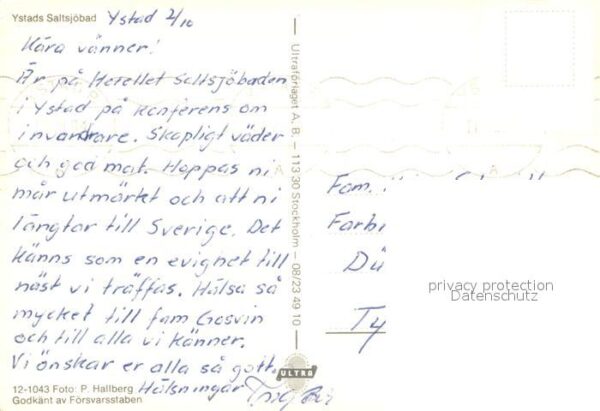 Ystads Saltsjöbad
Ystad 2/10
Kära vänner!
Är på Hotellet Saltsjöbaden
i Ystad på konferens om
invandrare. Skapligt väder
och god mat. Hoppas ni
mår utmärket och att ni
längtar till Sverige. Det
känns som en evighet till
näst vi träffas. Hälsa så
mycket till fam Gosvin
och till alla vi känner.
Vi önskar er alla så gott.
Hälsningar
12-1043 Foto: P. Hallberg
Godkänt av Försvarsstaben
Ultraförlaget A.B. – 113 30 Stockholm – 08/23 49 10
ULTRA
Fam.
Farbi
Dü
Ty
privacy protection
Datenschutz